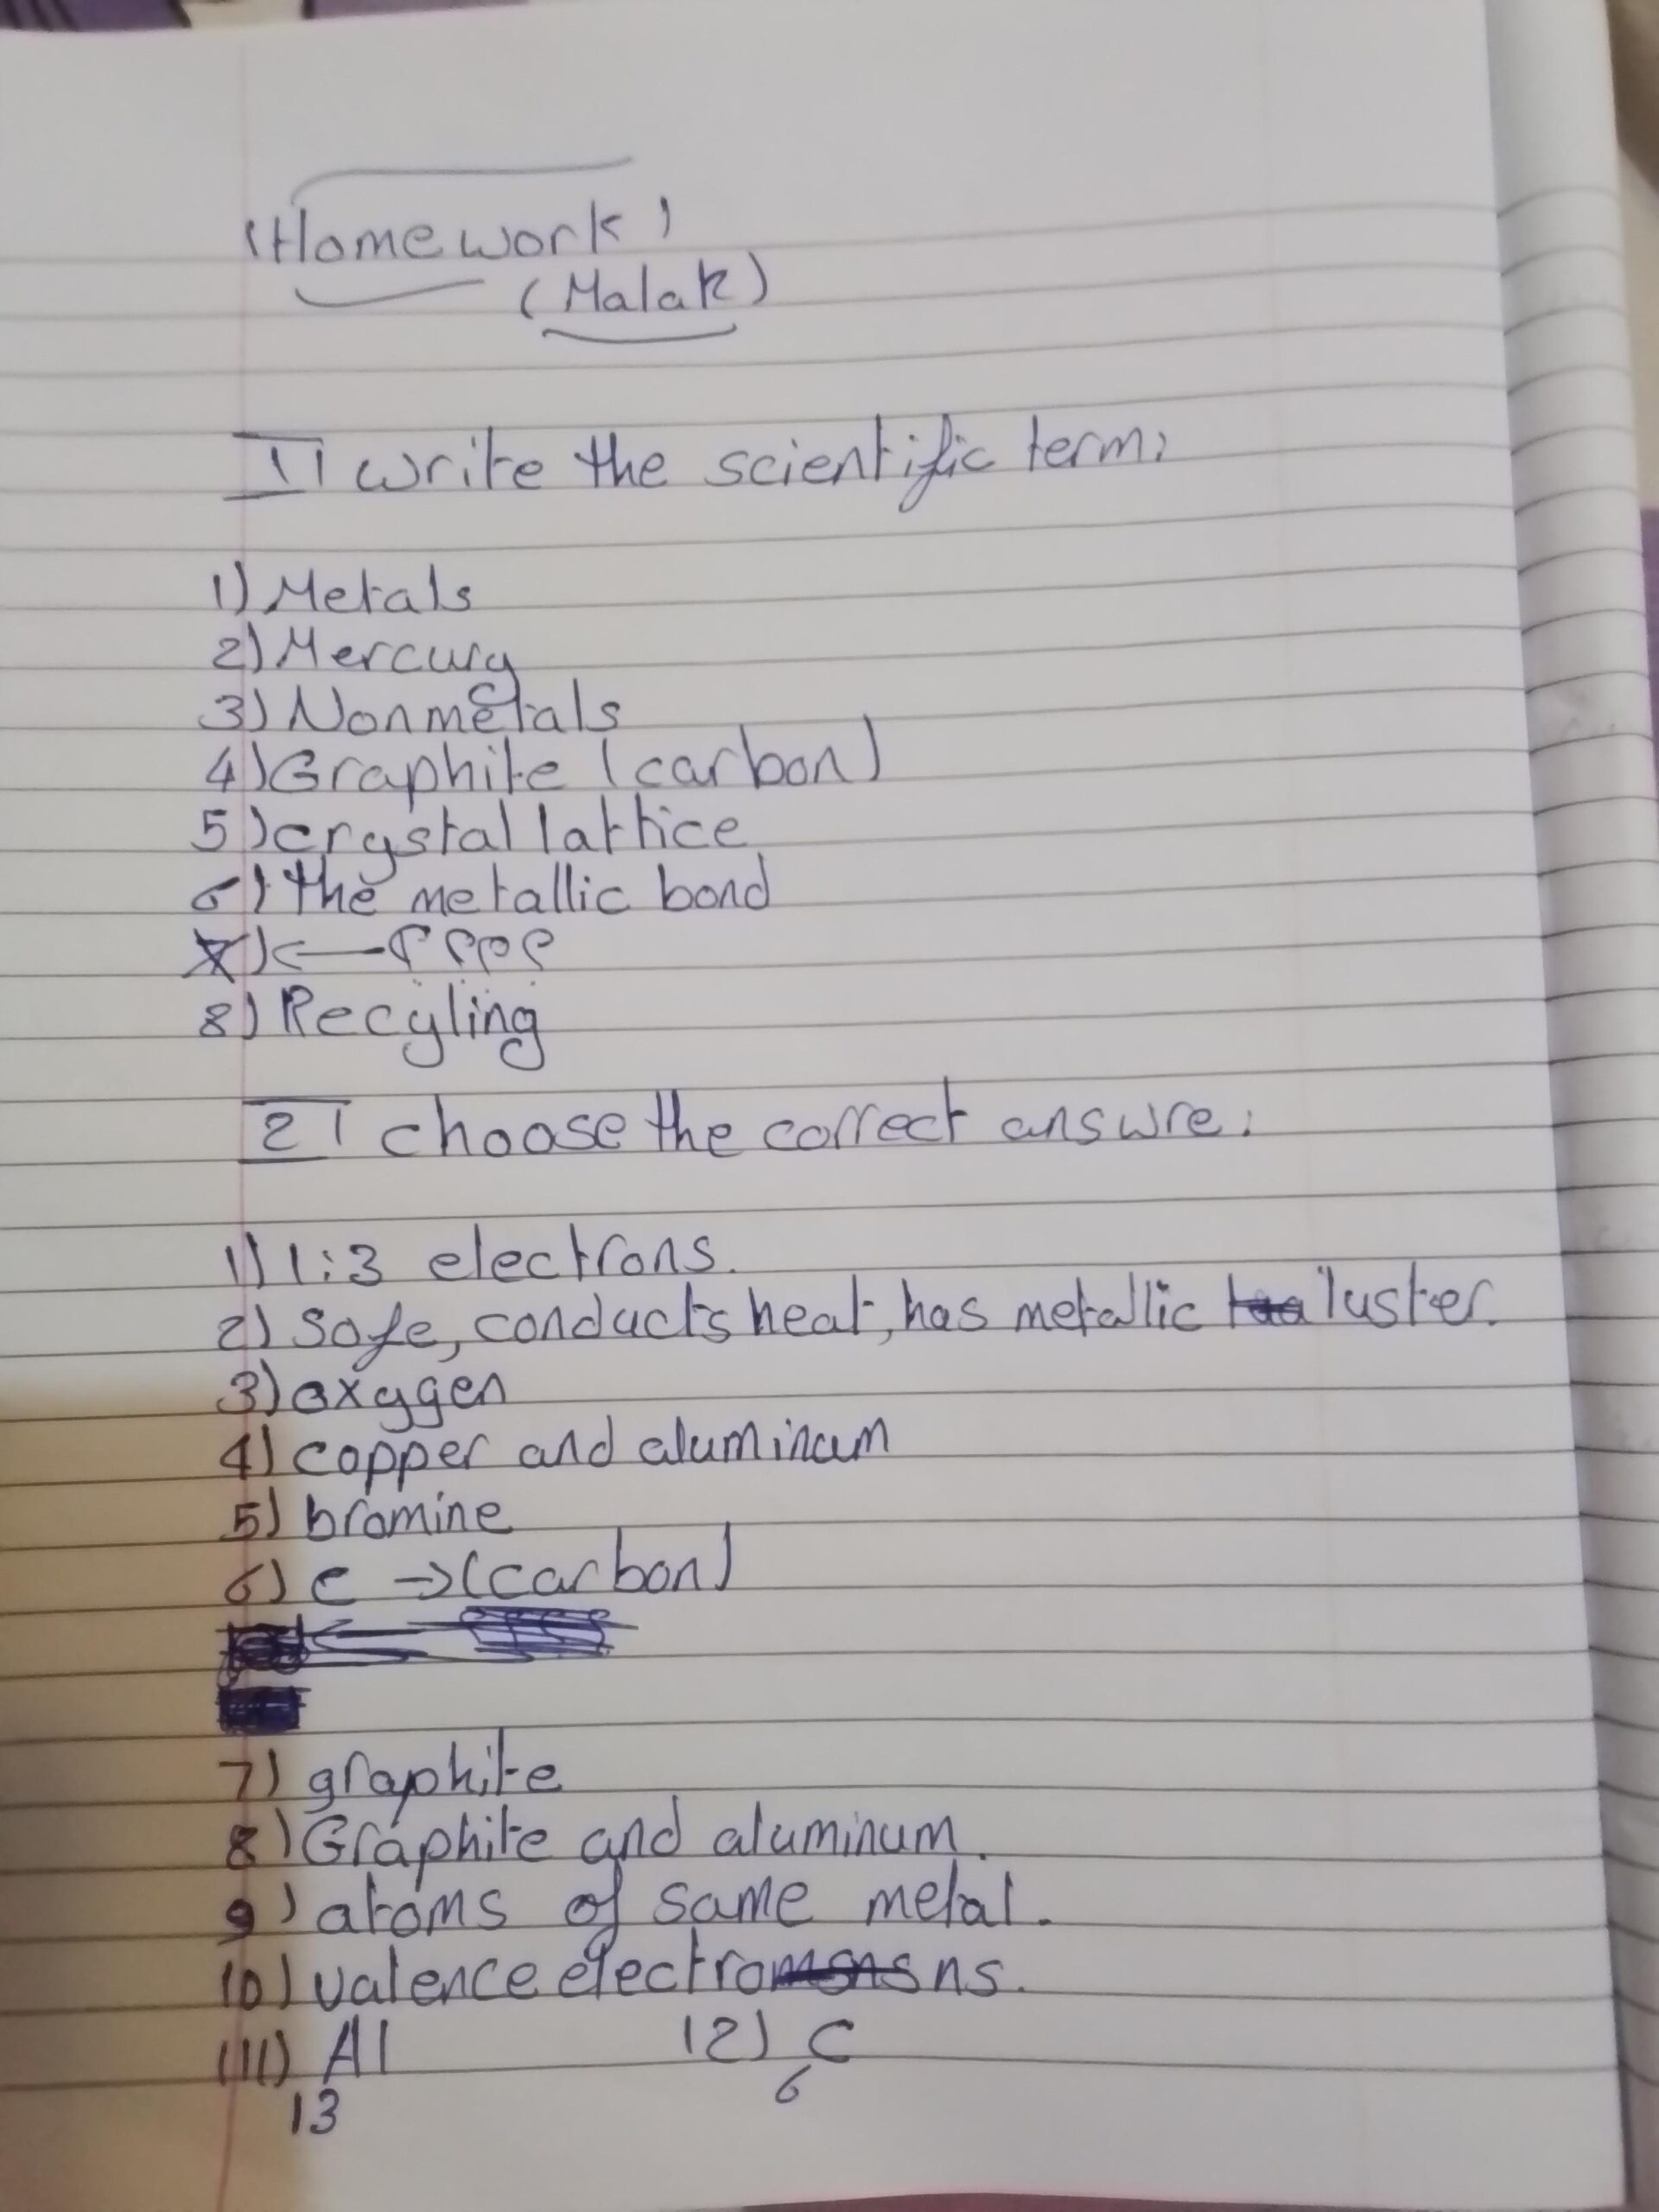 (Homework)
(Malak)
1) write the scientific term:
1) Metals
2) Mercury
3) Nonmetals
4) Graphite (carbon)
5) crystal lattice
6) the metallic bond
7) ←
8) Recyling
2) choose the correct answre:
1) 1:3 electrons.
2) Safe, conducts heat, has metallic luster.
3) oxygen
4) copper and aluminum
5) bromine
6) C → (carbon)
7) graphite
8) Graphite and aluminum.
9) atoms of same metal.
10) valence electrons.
11) Al 12) C
13 6